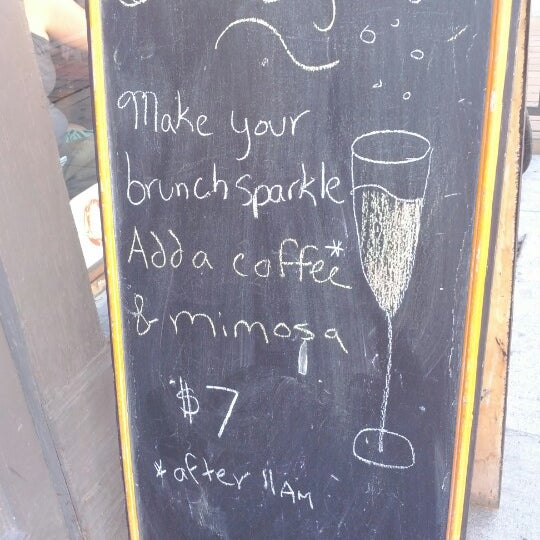 Make your
brunch sparkle
Add a coffee*
& mimosa
$7
*after 11AM